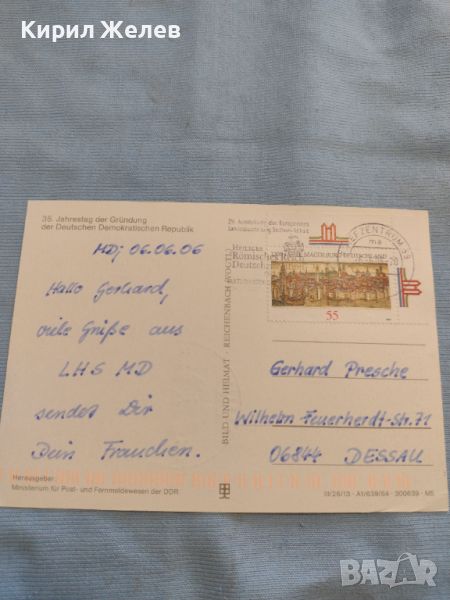 Кирил Желев
35. Jahrestag der Gründung
der Deutschen Demokratischen Republik
MD, 06.06.06
Hallo Gerhard,
viele Grüße aus
LHS MD
sendet Dir
Dein Frauchen.
Herausgeber:
Ministerium für Post- und Fernmeldewesen der DDR
BILD UND HEIMAT · REICHENBACH (VOGTL)
29. Ausstellung des Europarates
Landesausstellung Sachsen-Anhalt
HEILIGES
Römisches
Deutsche
MAGDEBURG DEUTSCHLAND
55
BRIEFZENTRUM 39
ma
Gerhard Presche
Wilhelm-Feuerherdt-Str. 71
06844 DESSAU
III/26/13 · A1/639/84 · 300839 · M5
BAZAR